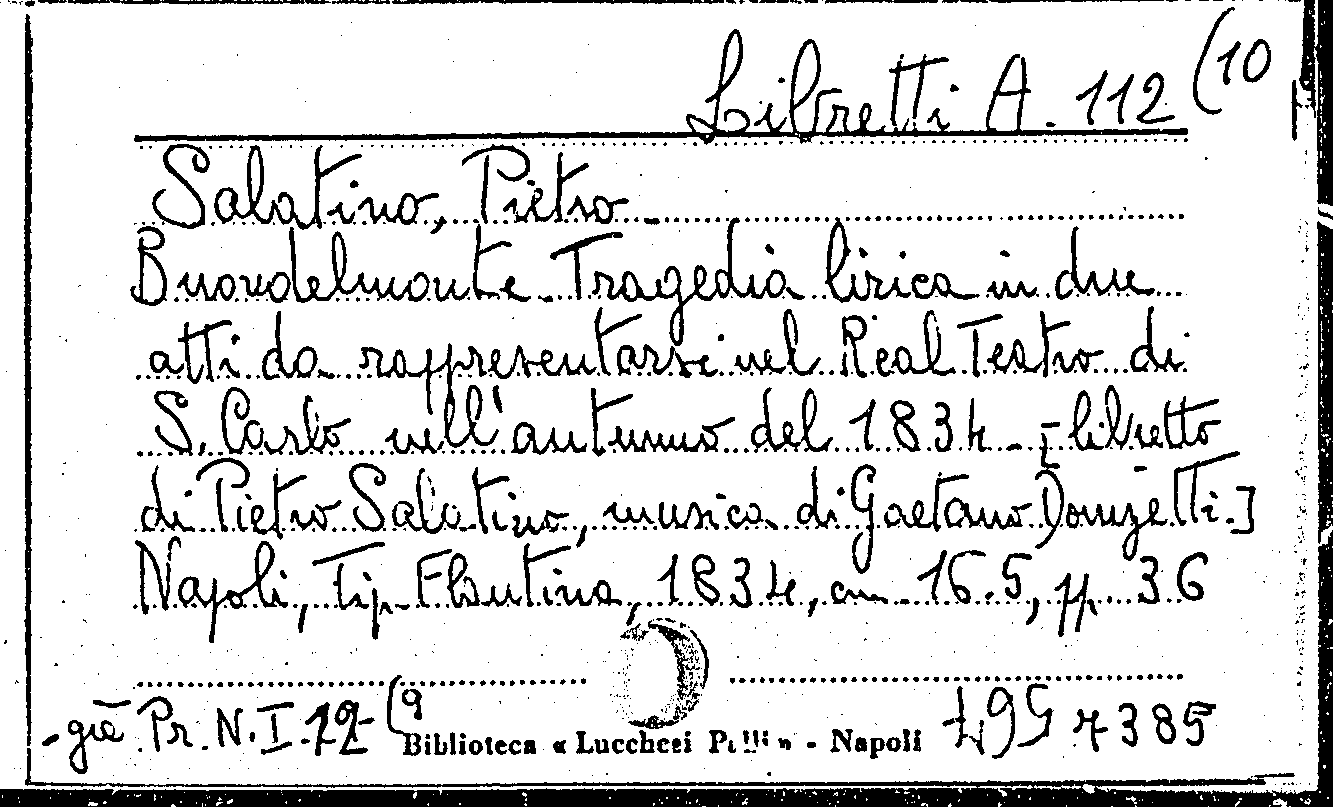 Libretti A. 112 (10
Salatino, Pietro -
Buondelmonte. Tragedia lirica in due
atti da rappresentarsi nel Real Teatro di
S. Carlo nell'autunno del 1834 - [libretto
di Pietro Salatino, musica di Gaetano Donizetti.]
Napoli, Tip. Flautina, 1834, cm. 16.5, pp. 36
- già Pr. N. I. 12 (9
Biblioteca « Lucchesi Palli » - Napoli
7385